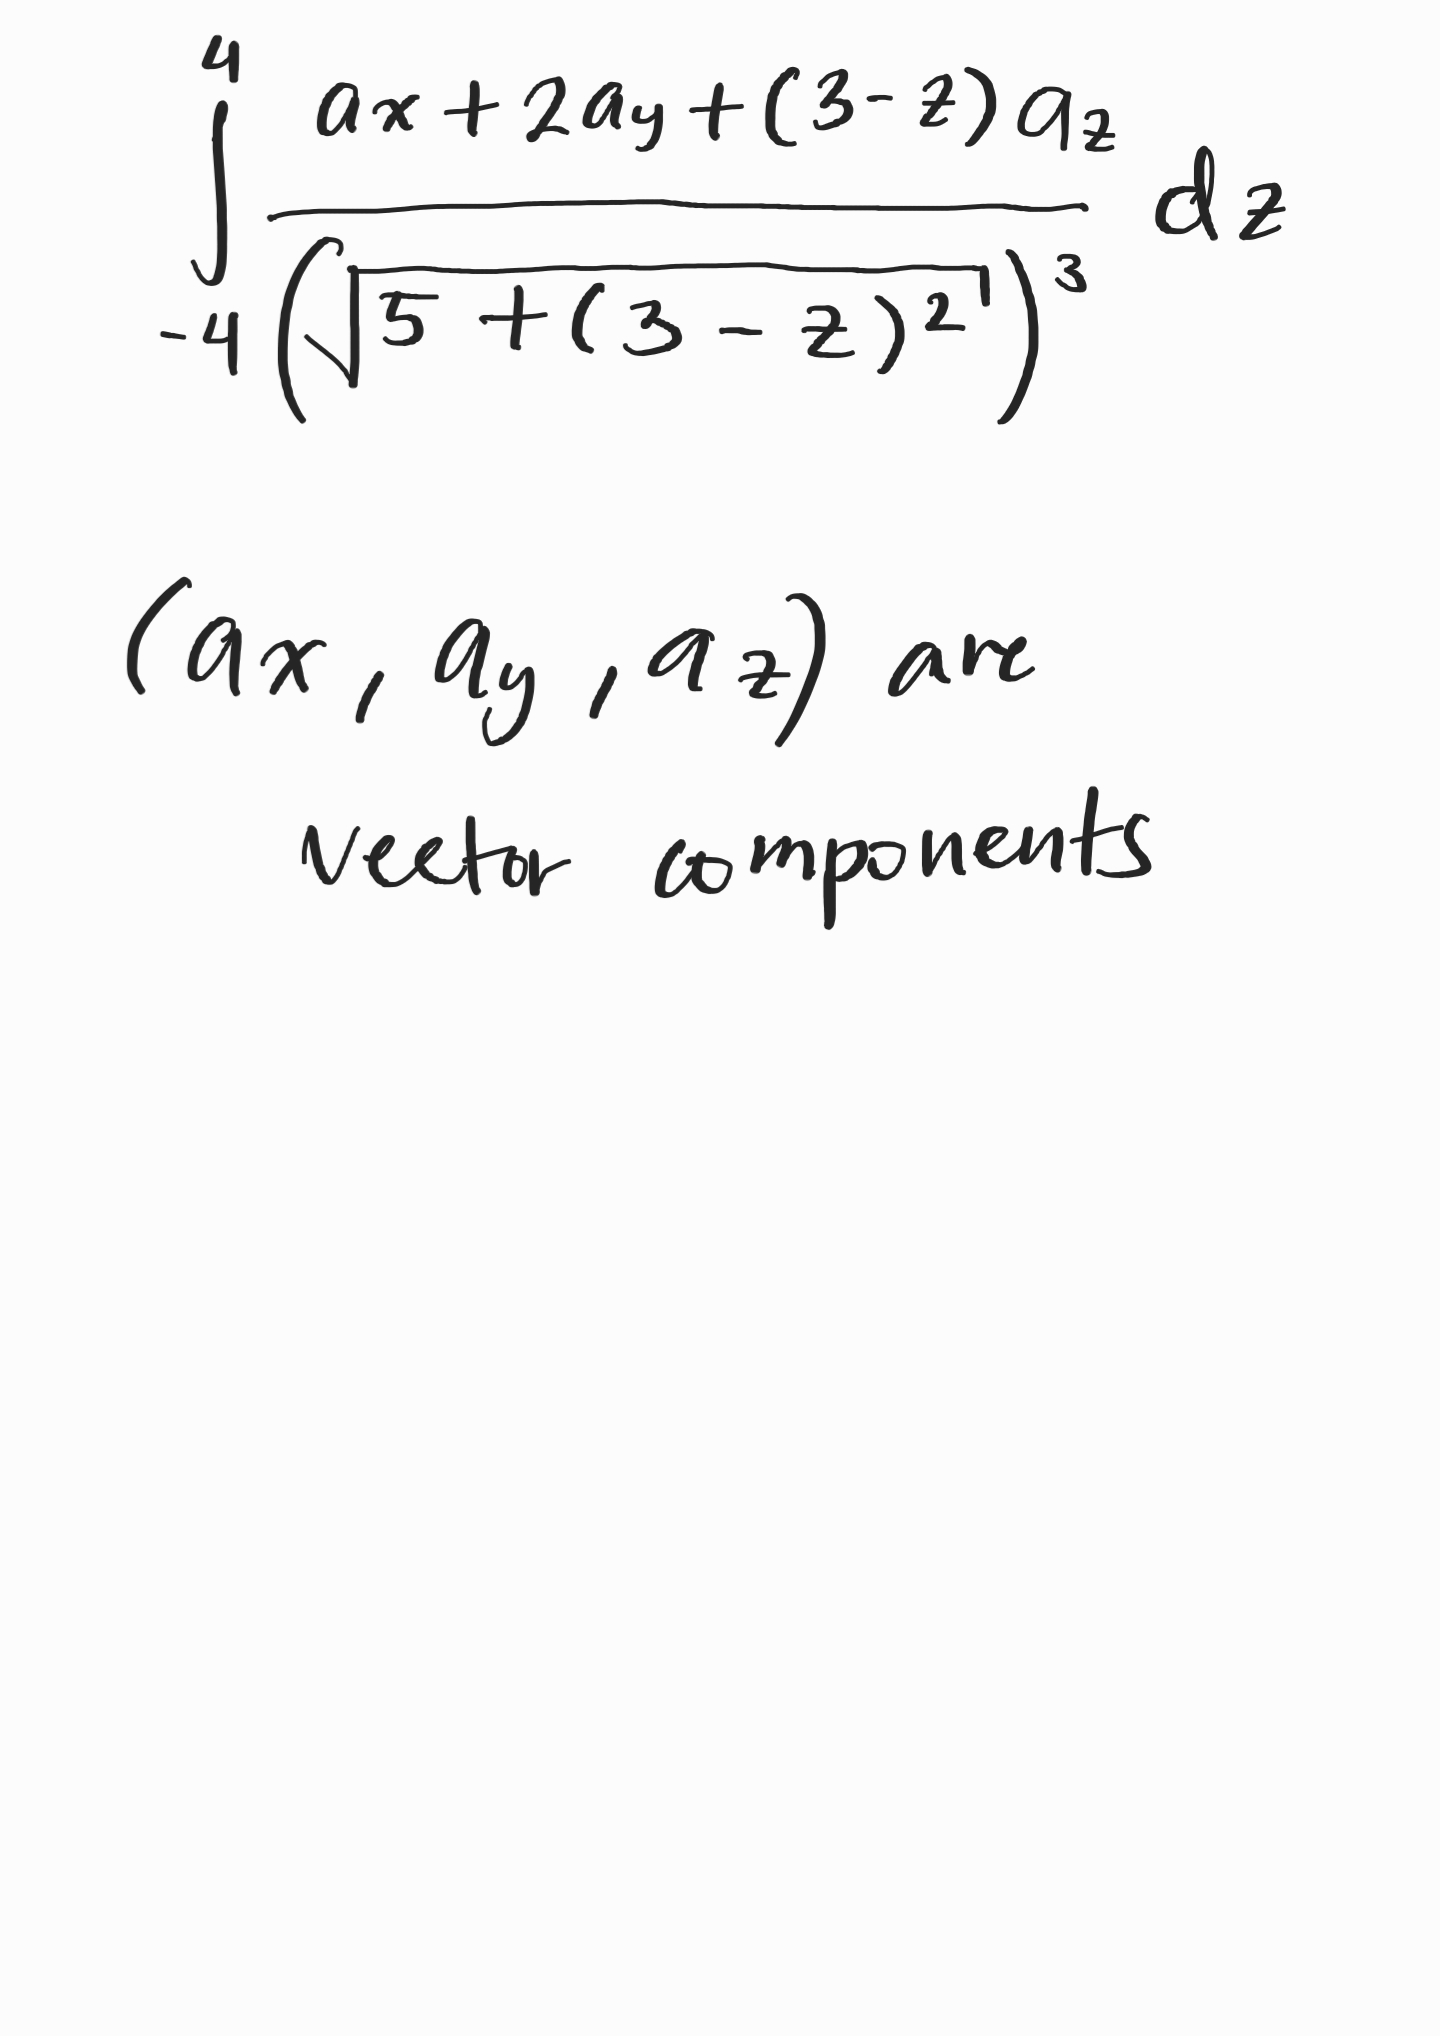 ∫_{-4}^{4} \frac{a_x + 2a_y + (3-z)a_z}{(\sqrt{5 + (3-z)^2})^3} dz
(a_x, a_y, a_z) are
vector components